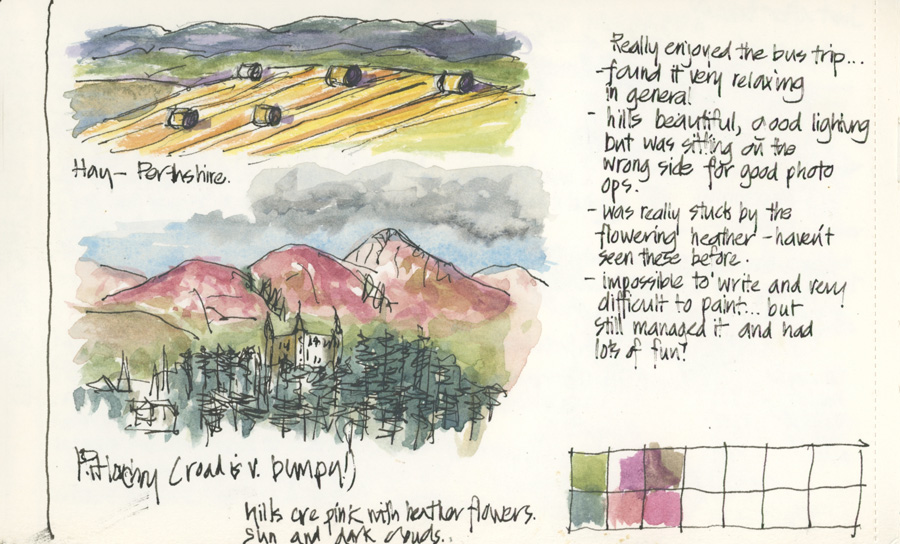 Hay – Perthshire.
Pitlochry (road is v. bumpy!)
hills are pink with heather flowers.
Sun and dark clouds..
Really enjoyed the bus trip...
- found it very relaxing
in general
- hills beautiful, good lighting
but was sitting on the
wrong side for good photo
ops.
- was really stuck by the
flowering heather - haven't
seen these before.
- impossible to write and very
difficult to paint... but
still managed it and had
lots of fun!